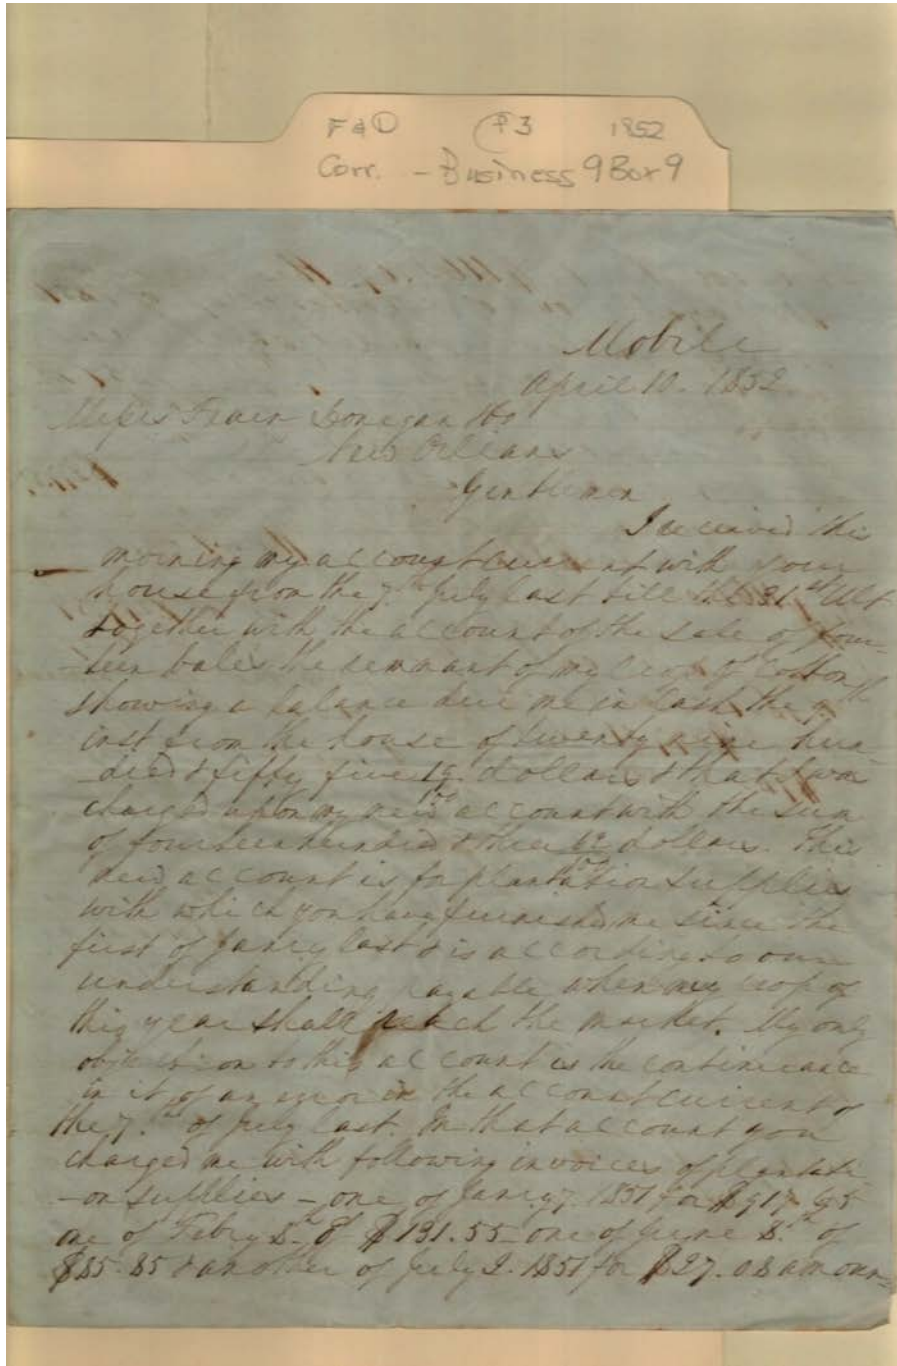 F & D P3 1852
Corr. - Business 9 Box 9
Mobile
April 10. 1852
Messrs Fearn Donegan & Co
New Orleans
Gentlemen
I received this
morning my account current with your
house from the 7th July last till the 31st Ult
together with the account of the sale of four-
-teen bales the remnant of my crop of Cotton
showing a balance due me in Cash the 7th
inst from the house of twenty nine hun
-dred & fifty five dollars & that I was
charged upon my new account with the sum
of fourteen hundred & three dollars. This
new account is for plantation supplies
with which you have furnished me since the
first of Jany last & is according to our
understanding payable when my crop of
this year shall reach the market. My only
objection to this account is the continuance
in it of an error in the account current of
the 7th of July last. In that account you
charged me with following invoices of plantati
-on supplies - one of Jany 7. 1851 for $917.65
one of Feby 8th of $131.55 one of June 8th of
$85.85 & another of July 2. 1851 for $27.08 amoun-